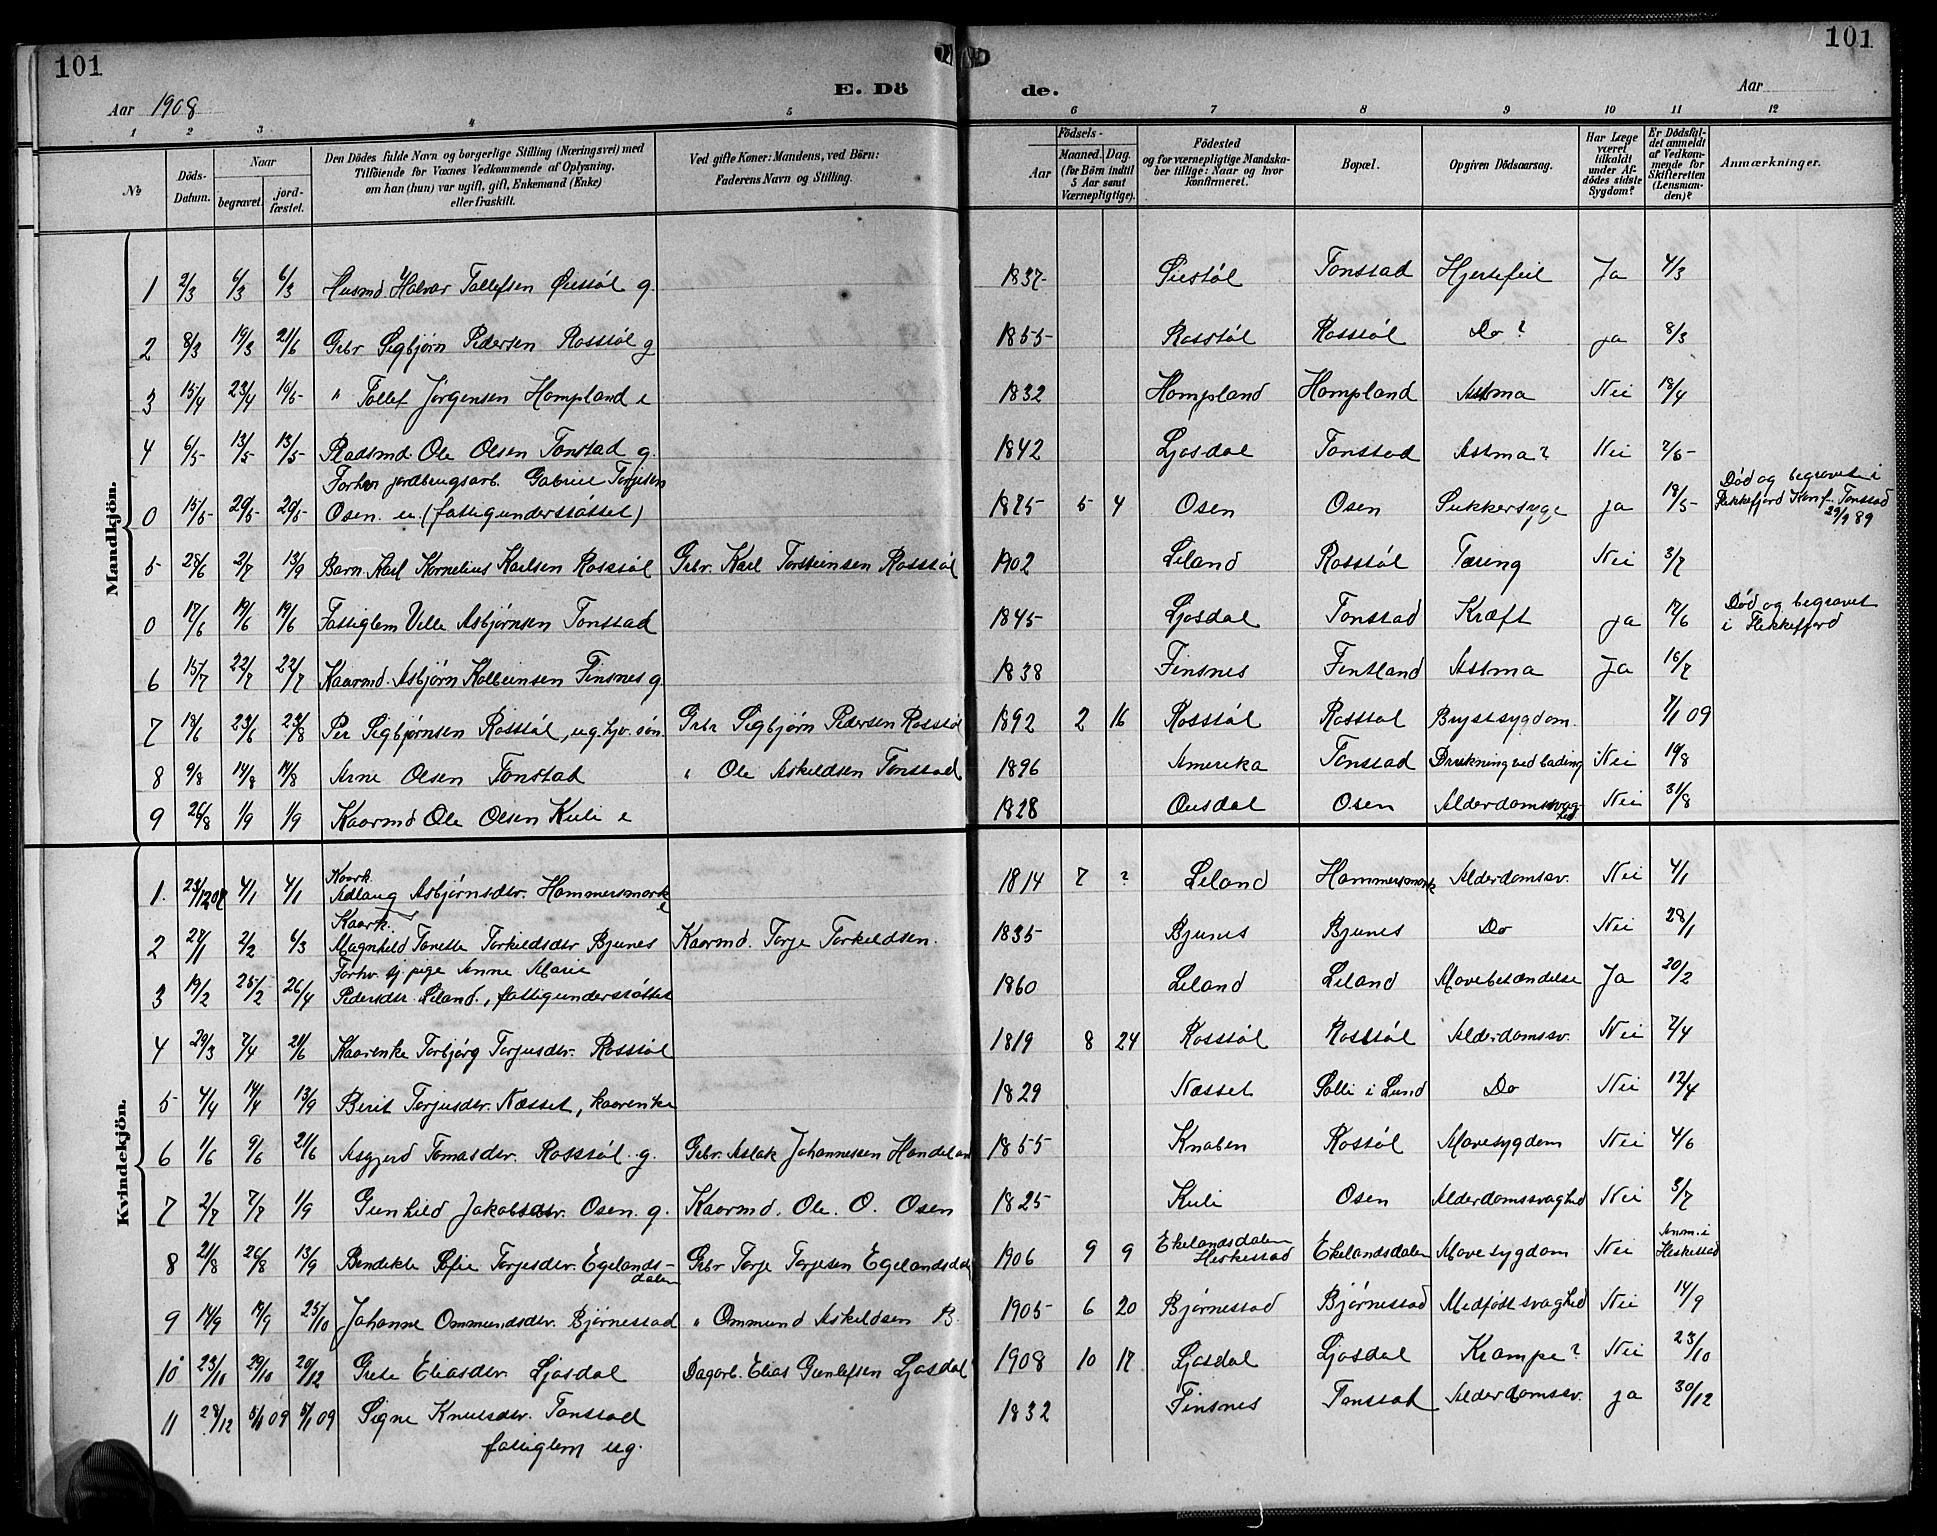 101
101
E. Dö de.
Aar 1908
Aar
1 2 3 4 5 6 7 8 9 10 11 12
No
Döds-Datum.
Naar
begravet.
jord-fæstet.
Den Dödes fulde Navn og borgerlige Stilling (Næringsvei) med
Tilföiende for Voxnes Vedkommende af Oplysning,
om han (hun) var ugift, gift, Enkemand (Enke)
eller fraskilt.
Ved gifte Koner: Mandens, ved Börn:
Faderens Navn og Stilling.
Födsels-
Aar
Maaned. Dag.
(for Börn indtil
5 Aar samt
Værnepligtige).
Födested
og for værnepligtige Mandska-
ber tillige: Naar og hvor
Konfirmeret.
Bopæl.
Opgiven Dödsaarsag.
Har Læge
været
tilkaldt
under Af-
dödes sidste
Sygdom?
Er Dödsfal-
det anmeldt
af Vedkom-
mende for
Skifteretten
(Lensman-
den)?
Anmærkninger.
Mandkjön.
1 2/3 6/3 6/3 Husmd. Halvar Tollefsen Øiestøl g. 1837 Øiestøl Tonstad Hjertefeil Ja 4/3
2 8/3 19/3 21/6 Grbr Sigbjørn Pedersen Rosstøl g 1855 Rosstøl Rosstøl Do? ja 8/3
3 15/4 23/4 10/5 " Tollef Jørgensen Hompland e 1832 Hompland Hompland Astma Nei 18/4
4 6/5 13/5 13/5 Ole Olsen Tonstad g. 1842 Ljosdal Tonstad Astma? Nei 7/5
Forhen jordbrugsarb. Gabriel Torjesen
0 15/5 20/5 20/5 Osen. u. (fattigunderstøttet) 1875 5 4 Osen Osen Sukkersyge ja 18/5 Død og begravet i
Flekkefjord Konf. Tonstad
29/9 89
5 25/6 2/7 13/9 Barn Karl Kornelius Karlsen Rosstøl Grbr. Karl Torsteinsen Rosstøl 1902 Liland Rosstøl Tæring Nei 3/7
0 17/6 19/6 19/6 Fattiglem Ville Asbjørnsen Tonstad 1845 Ljosdal Tonstad Kræft ja 17/6 Død og begravet
i Flekkefjord
6 15/7 22/7 22/7 Kaarmd. Asbjørn Kolbeinsen Finsnes g. 1838 Finsnes Fintland Astma Ja 16/7
7 18/6 23/6 23/8 Per Sigbjørnsen Rosstøl, ug. hjv. søn Grbr Sigbjørn Pedersen Rosstøl 1892 2 16 Rosstøl Rosstøl Brystsygdom. 7/1 09
8 9/8 14/8 14/8 Arne Olsen Tonstad " Ole Askildsen Tonstad 1896 Amerika Tonstad Drukning ved bading Nei 10/8
9 26/8 1/9 1/9 Kaarmd Ole Olsen Kvli e 1828 Ousdal Osen Alderdomssvag-
hed Nei 31/8
Kvindekjön.
Kaark.
1. 23/12 07 4/1 4/1 Adlaug Asbjørnsdtr. Hammersmark
e 1814 7 ? Liland Hammersmark Alderdomssv. Nei 4/1
Kaark.
2 27/1 2/2 6/3 Magnhild Tonette Torkildsdtr Bjunes Kaarmd. Torje Torkildsen. 1835 Bjunes Bjunes Do Nei 28/1
Forhv. tj. pige Anne Marie
3 19/2 25/2 26/4 Pedersdtr. Liland, fattigunderstøttet 1860 Liland Liland Mavebetændelse Ja 20/2
4 29/3 7/4 21/6 Kaarenke Torbjørg Torjusdtr. Rosstøl 1819 8 24 Rosstøl Rosstøl Alderdomssv. Nei 7/4
5 4/4 14/4 13/9 Berit Torjusdtr. Næsset, kaarenke 1829 Næsset Solli i Lund Do Nei 12/4
6 1/6 9/6 21/6 Asgjerd Tomasdtr. Rosstøl. g. Grbr. Aslak Johannessen Handeland 1855 Knaben Rosstøl Mavesygdom Nei 4/6
7 2/7 7/7 1/9 Gunhild Jakobsdtr. Osen. g. Kaarmd. Ole. O. Osen 1825 Kvli Osen Alderdomssvaghed Nei 3/7
8 21/8 26/8 13/9 Bendikte Sofie Torjesdtr. Egelands-
dalen Grbr Torje Torjesen Egelandsdal 1906 9 9 Ekelandsdalen
Heskestad Ekelandsdalen Mavesygdom Nei Anm. i
Heskestad
9 14/9 19/9 25/10 Johanne Ommundsdtr. Bjørnestad " Ommund Askildsen B. 1905 6 20 Bjørnestad Bjørnestad Medfødt svaghed Nei 14/9
10 23/10 29/10 20/12 Grete Eliasdtr. Ljosdal Dagarb. Elias Gunlefsen Ljosdal 1908 10 17 Ljosdal Ljosdal Krampe? Nei 23/10
11 28/12 5/1 09 5/1 09 Signe Knutsdtr. Tonstad
fattiglem ug. 1832 Finsnes Tonstad Alderdomssv. ja 30/12